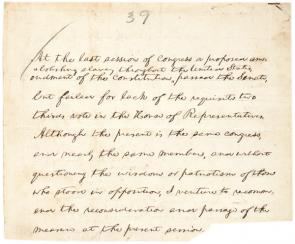 39
At the last session of Congress a proposed amendment
abolishing slavery throughout the United States,
of the Constitution, passed the Senate,
but failed for lack of the requisite two
thirds vote in the House of Representatives
Although the present is the same Congress,
and nearly the same members, and without
questioning the wisdom or patriotism of those
who stood in opposition, I venture to recommend
the reconsideration and passage of the
measure at the present session.